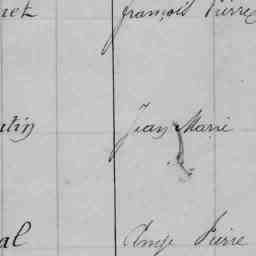 net François Pierre
utin Jean Marie
al Ange Pierre